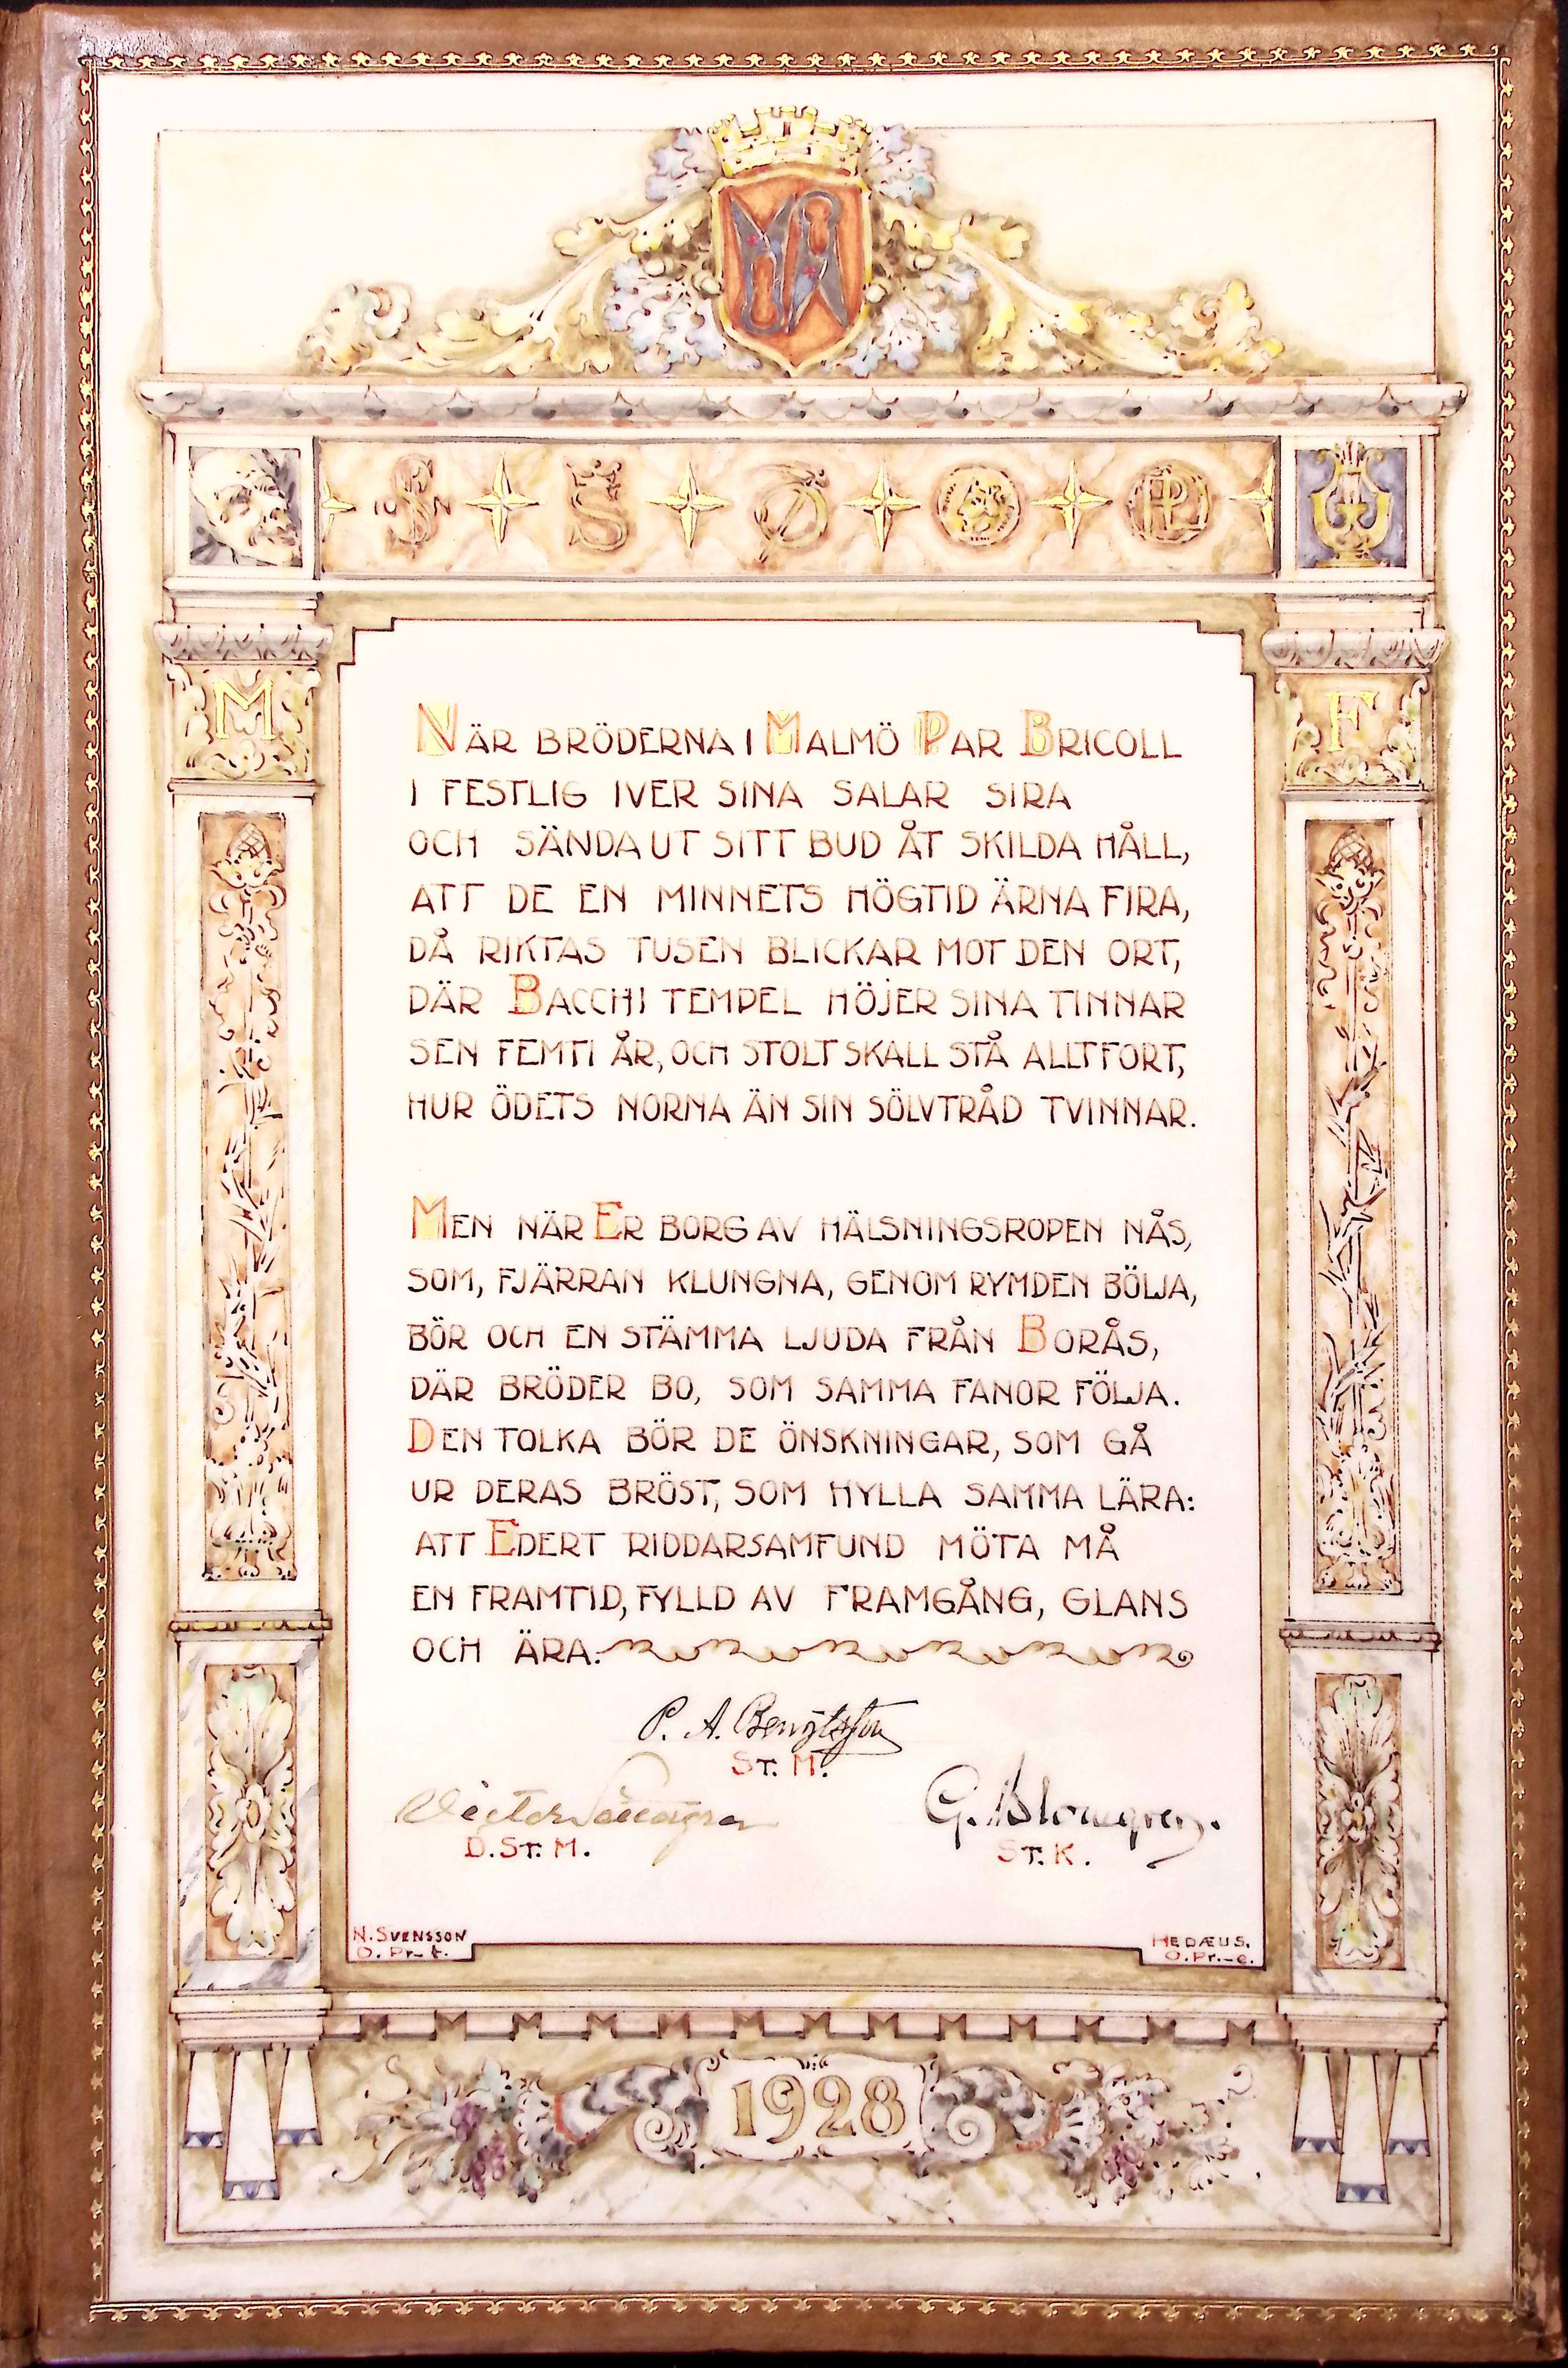 M
F
När bröderna i Malmö Par Bricoll
i festlig iver sina salar sira
och sända ut sitt bud åt skilda håll,
att de en minnets högtid ärna fira,
då riktas tusen blickar mot den ort,
där Bacchi tempel höjer sina tinnar
sen femti år, och stolt skall stå alltfort,
hur ödets norna än sin sölvtråd tvinnar.
Men när Er borg av hälsningsropen nås,
som, fjärran klungna, genom rymden bölja,
bör och en stämma ljuda från Borås,
där bröder bo, som samma fanor följa.
Den tolka bör de önskningar, som gå
ur deras bröst, som hylla samma lära:
att Edert riddarsamfund möta må
en framtid, fylld av framgång, glans
och ära.
P. A. Bengtsson
St. M.
Victor
D. St. M.
G. Blomgren.
St. K.
N. Svensson
O. Pr-t.
Hedæus.
O. Pr.-e.
1928